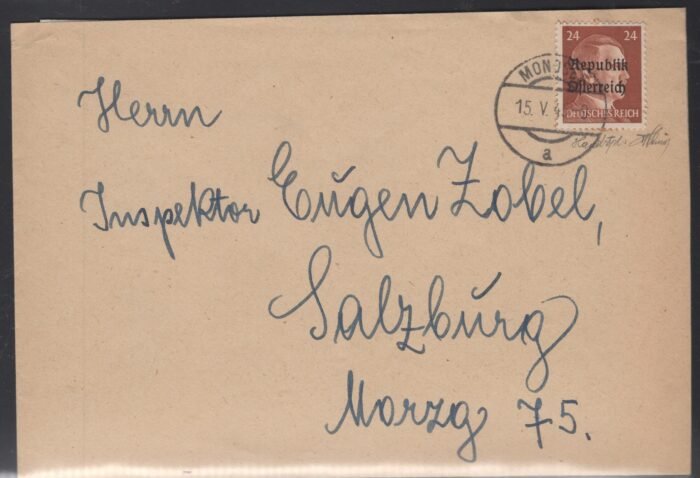 24 24
Republik
Österreich
DEUTSCHES REICH
15. V.
a
Herrn
Inspektor Eugen Zobel,
Salzburg
Morzg 75.